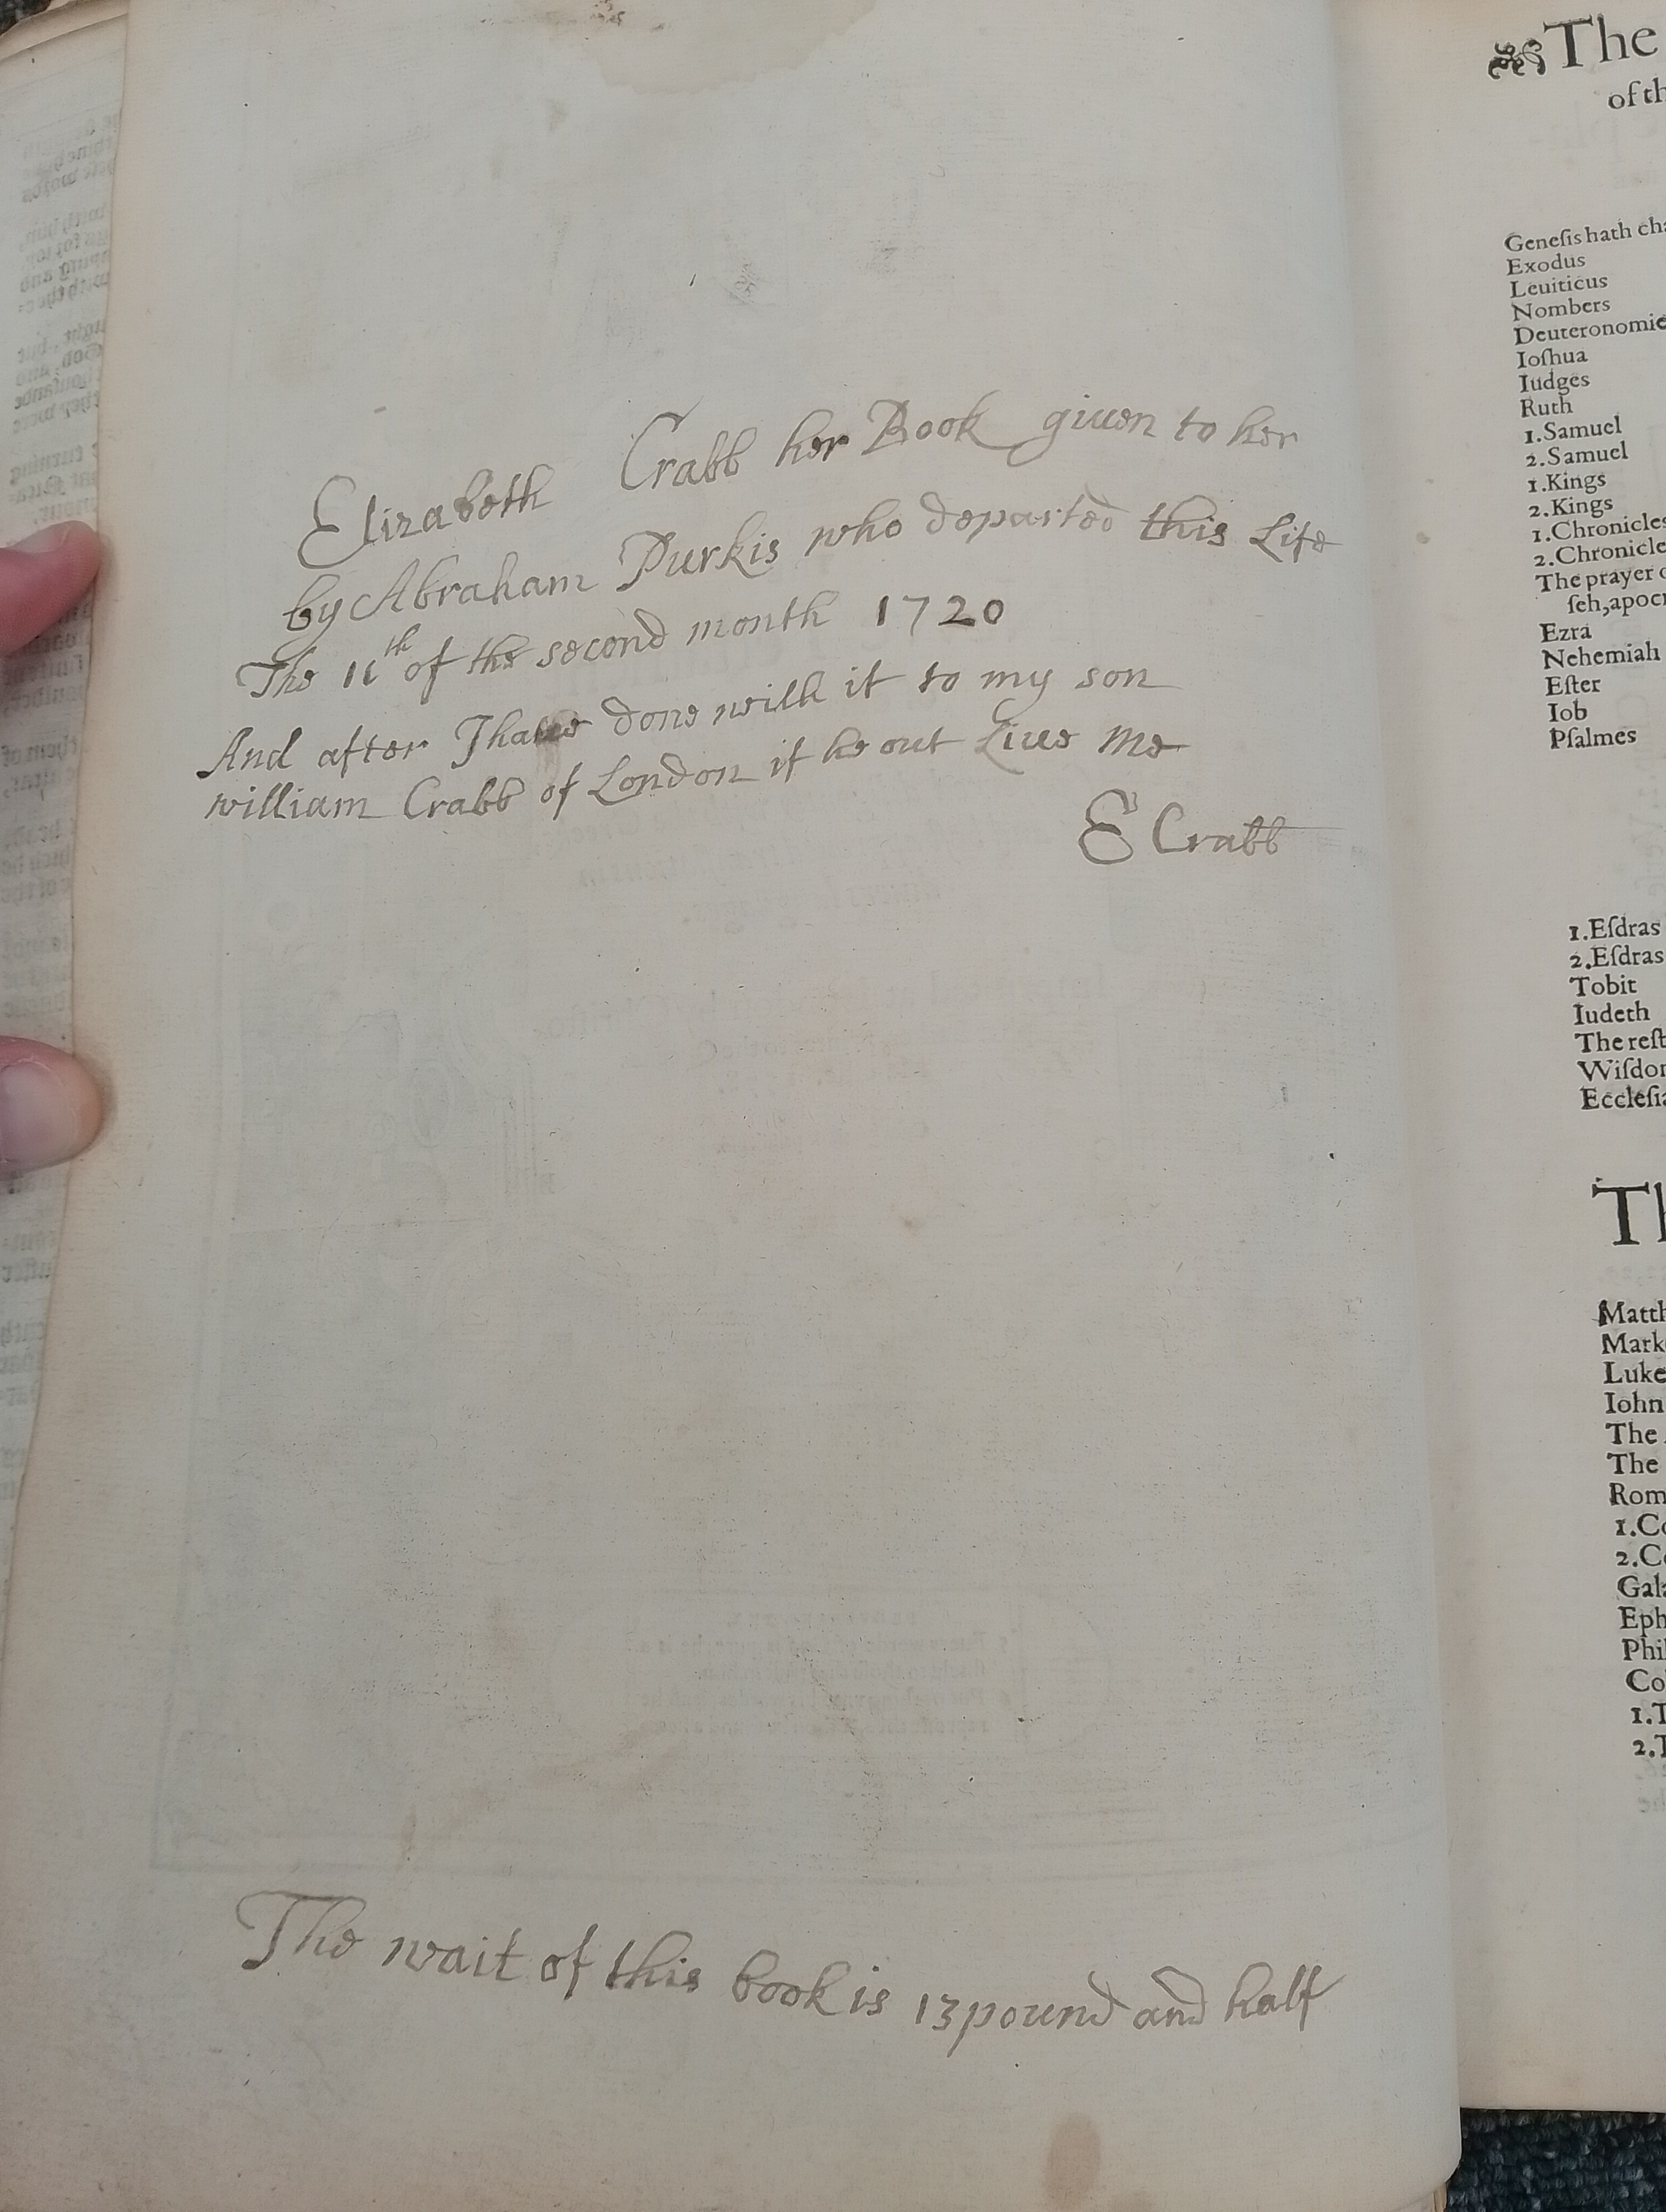 Elizabeth Crabb her Book giuen to her
by Abraham Purkis who departed this Life
The 11th of the second month 1720
And after I haue done with it to my son
william Crabb of London if he out Liues me
E Crabb
The wait of this book is 13 pound and half
The
of th
Geneſis hath cha
Exodus
Leuiticus
Nombers
Deuteronomie
Ioſhua
Iudges
Ruth
1.Samuel
2.Samuel
1.Kings
2.Kings
1.Chronicles
2.Chronicle
The prayer o
ſeh,apocr
Ezra
Nehemiah
Eſter
Iob
Pſalmes
1.Eſdras
2.Eſdras
Tobit
Iudeth
The reſt
Wiſdom
Eccleſia
Th
Matth
Mark
Luke
Iohn
The
The
Rom
1.Co
2.Co
Gala
Eph
Phil
Co
1.T
2.T